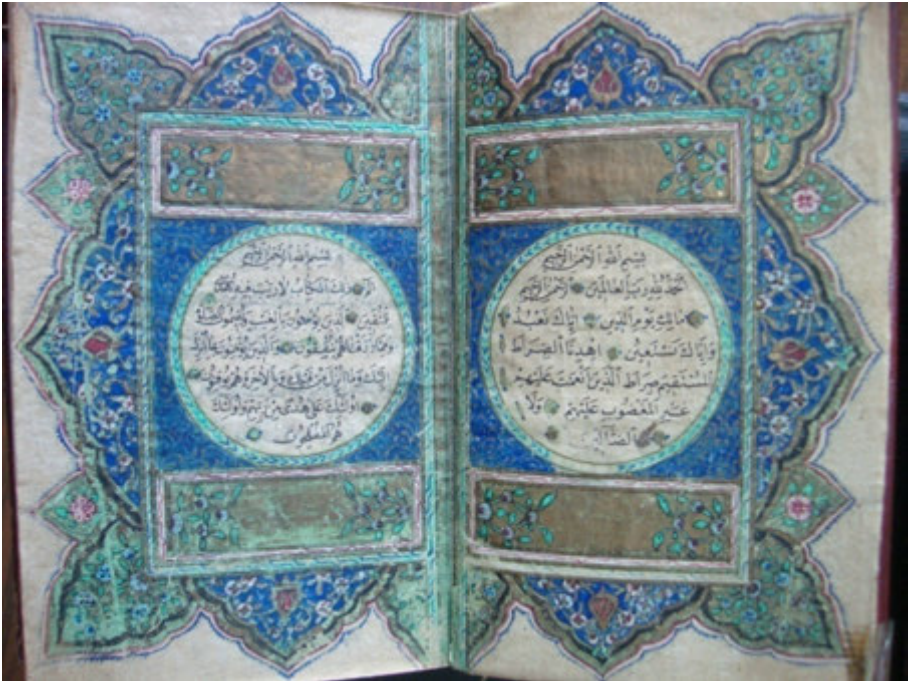 بسم الله الرحمن الرحيم
الحمد لله رب العالمين الرحمن الرحيم
مالك يوم الدين اياك نعبد
واياك نستعين اهدنا الصراط
المستقيم صراط الذين انعمت عليهم
غير المغضوب عليهم ولا
الضالين
بسم الله الرحمن الرحيم
الم ذلك الكتاب لا ريب فيه هدى
للمتقين الذين يؤمنون بالغيب ويقيمون الصلوة
ومما رزقناهم ينفقون والذين يؤمنون بما انزل
اليك وما انزل من قبلك وبالاخرة هم يوقنون
اولئك على هدى من ربهم واولئك
هم المفلحون